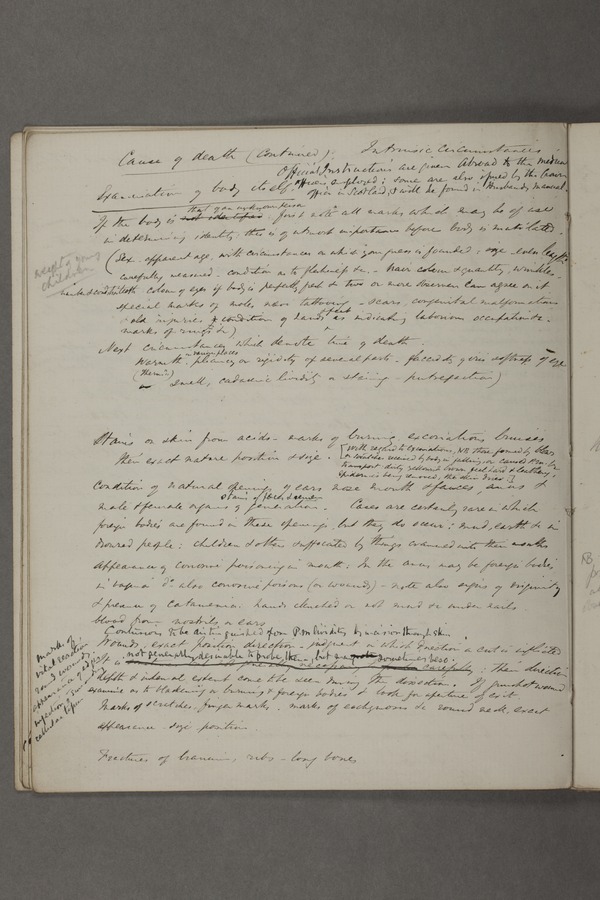 Cause of death (Continued). Intrinsic circumstances
Official Instructions are given abroad to the medical
Examination of body itself. officers employed; some are also issued by the Crown
office in Scotland, & will be found in Husbands manual.
that of an unknown person
If the body is not identified - first note all marks which may be of use
in determining identity. this is of utmost importance before body is mutilated.
(Sex. apparent age, with circumstances on which your guess is founded, size - even length
weight of young
children
carefully measured. condition as to fatness &c. hair colour & quantity, wrinkles
number & condition teeth colour of eyes if body is perfectly fresh & two or more observers can agree on it
special marks of moles, naevi tattooing - scars, congenital malformations
old injuries & condition of hands & feet as indicating laborious occupations.
marks of rings &c)
Next circumstances which denote time of death.
in various places
Warmth. pliancy or rigidity of several parts - flaccidity or softness of eye
(Thermr)
Smell, cadaveric lividity or staining - putrefaction)
Stains on skin from acids - marks of burning excoriations bruises
their exact nature position & size. [with regard to excoriations,
Condition of natural openings of ears nose mouth & fauces anus &
male & female organs of generation. Cases are certainly rare in which
foreign bodies are found in these openings, but they do occur: mud, earth &c in
drowned people: children & others suffocated by things crammed into their mouths
appearance of corrosive poisoning in mouth: In the anus may be foreign bodies
in vagina do also corrosive poisons (or wounds) - note also signs of virginity
& presence of catamenia. hands clenched or not mud &c under nails
blood from nostrils or ears
Contusions to be distinguished from P.m. lividity by incision through skin.
Wounds, exact position, direction - judgment in which position a cut is inflicted
not generally desirable to probe them, but sometimes so.
carefully: their direction
depth & internal extent come to be seen during the dissection. If gunshot wound
examine as to blackening or burning & foreign bodies & look for aperture of exit
marks of
vital reaction
round wounds.
appearance of edges
cellular tissue
Marks of scratches, finger marks. marks of ecchymosis &c round neck. exact
appearance - size position.
Fractures of cranium, ribs - long bones